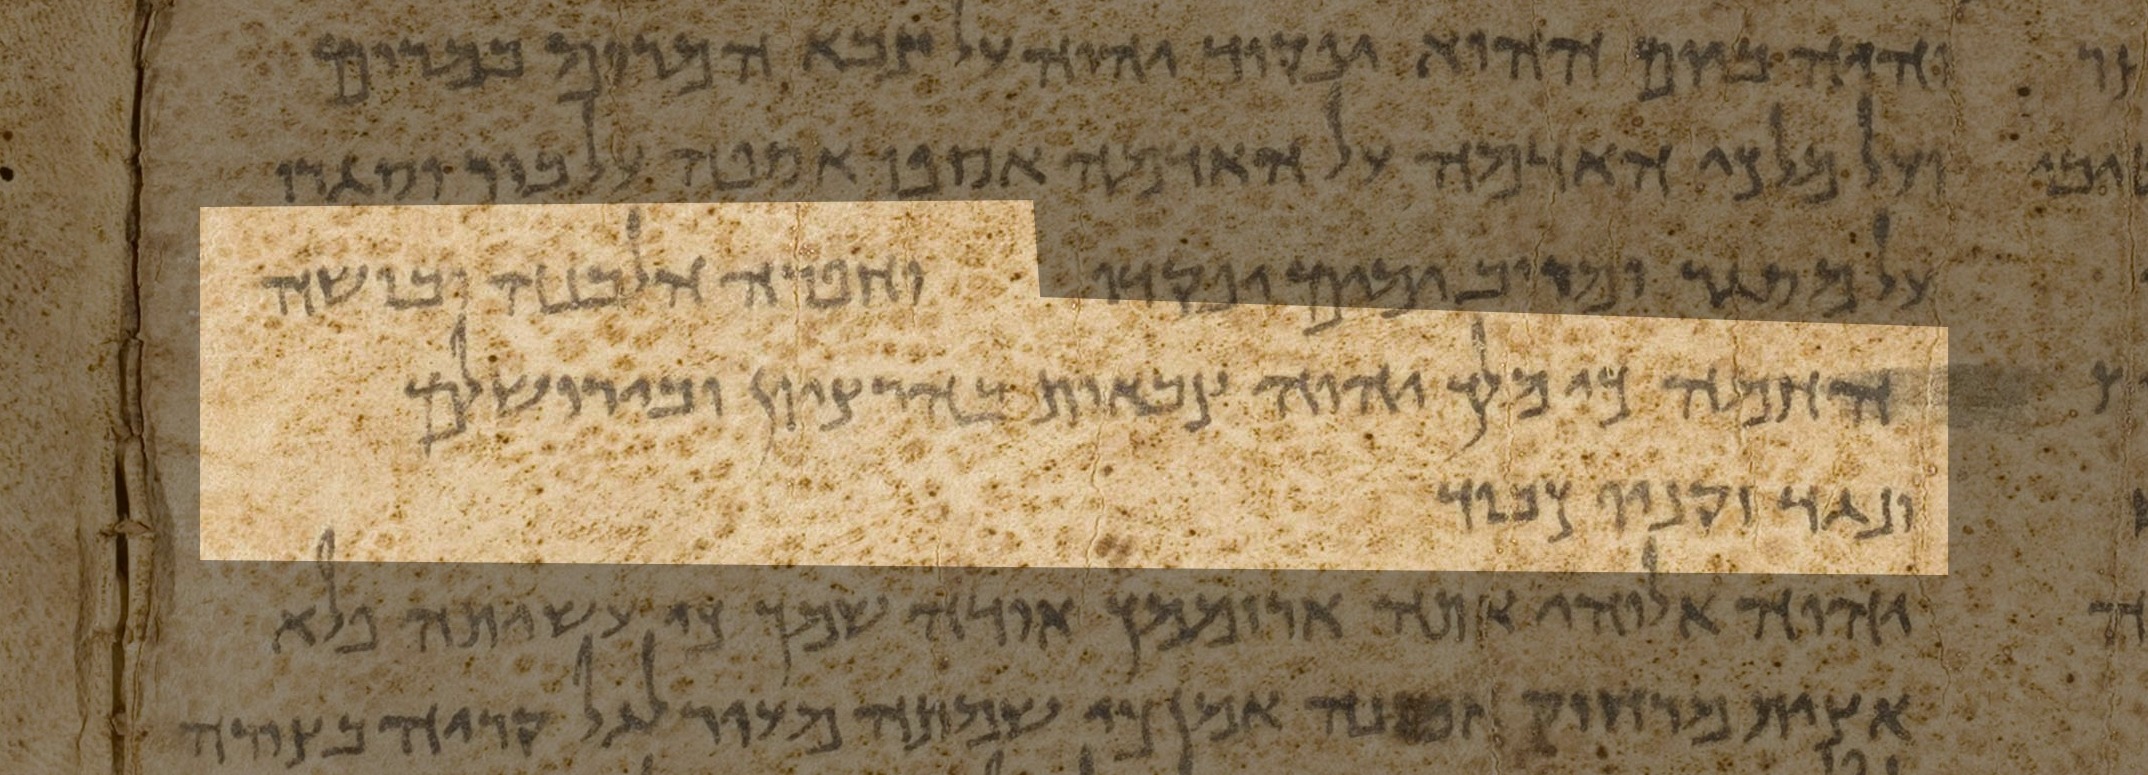 והיה ביום ההוא יפקוד יהוה על צבא המרום במרום
ועל מלכי האדמה על האדמה אספו אספה על בור וסגרו
על מסגר ומרוב ימים יפקדו וחפרה הלבנה ובושה
החמה כי מלך יהוה צבאות בהר ציון ובירושלם
ונגד זקניו כבוד
יהוה אלוהי אתה ארוממך אודה שמך כי עשיתה פלא
אצות מרחוק אמונה אמן כי שמתה מעיר לגל קריה בצורה